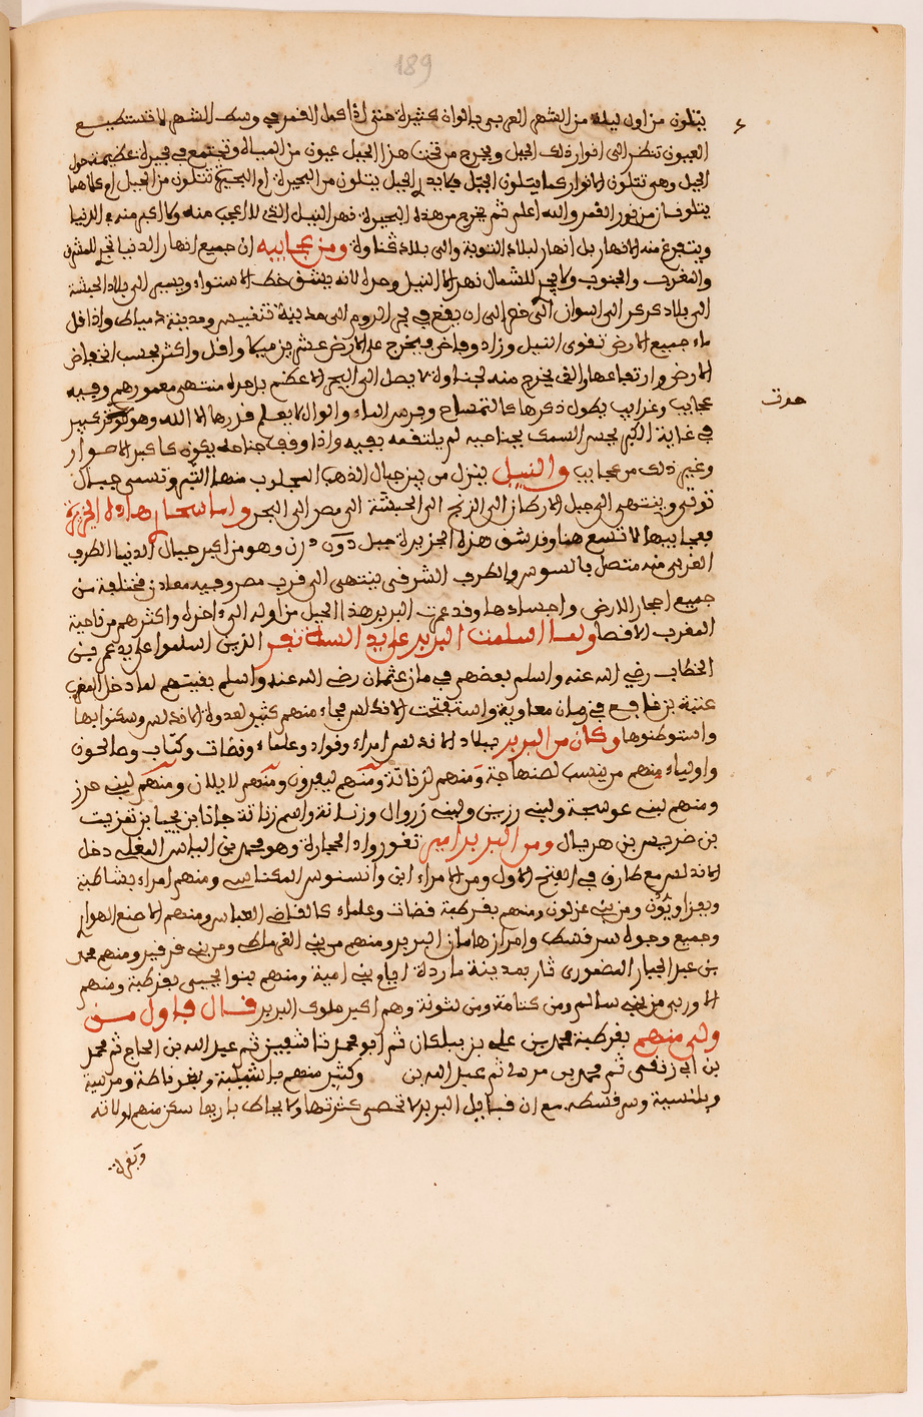 189
يتلون من اول ليلة من الشهر العربي بالوان كثيرة حتى اذا كمل القمر في وسط الشهر لا تستطيع
العيون تنظر الى انوار ذلك الجبل ويخرج من تحت هذا الجبل عيون من المياه وتجتمع في بحيرة عظيمة حول
الجبل وهي تتلون الانوار كما يتلون الجبل فلا يدرى الجبل يتلون من البحيرة او البحيرة تتلون من الجبل او كلاهما
يتلونان من نور القمر والله اعلم ثم يخرج من هذه البحيرة نهر النيل الذي لا اعجب منه ولا اكبر منه في الدنيا
ويتفرع منه الانهار بل انهار لبلاد النوبة والى بلاد قناوة ومن عجايبه ان جميع انهار الدنيا تجر للمشرق
والمغرب والجنوب ولا يجر للشمال نهر الا النيل وحده لانه يشق خط الاستواء ويسير الى بلاد الحبشة
الى بلاد كركر الى اسوان الى ان يقع في بحر الروم الى مدينة تنفيس ومدينة دمياط واذا قل
ماء جميع الارض تقوى النيل وزاد وفاض فيخرج على الارض عشرين ميلا واقل واكثر بحسب انخفاض
الارض وارتفاعها والذي يخرج منه لجناوة لا يصل الى البحر الاعظم بل هو له منتهى معمورهم وفيه
عجايب وغرايب يطول ذكرها كالتمساح وفرس الماء واموال لا يعلم قدرها الا الله وهو كبير
حدت
في غاية الكبر يحسر السمك بجناحيه ثم يلتقمه بفيه واذا وقف جناحه يكون كاكبر الاصوار
وغير ذلك من عجايب والنيل ينزل من بين جبال الذهب المجلوب منها التبر وتسمى جبال
توتي وينتهي الى جبل الاركان الى الزنج الى الحبشة الى مصر الى البحر واما اسحار هاذه الجزيرة
فعجايبها لا تسع هنا وقد شق هذه الجزيرة جبل درن وهو من اكبر جبال الدنيا الطرف
الغربي منه متصل بالسوس والطرف الشرقي ينتهي الى قرب مصر وفيه معادن مختلفة من
جميع احجار الارض واجسادها وقد عمرت البربر هذا الجبل من اوله الى ءاخره واكثرهم من ناحية
المغرب الاقصا ولما اسلمت البربر على يد الستة نفر الذين اسلموا على يد عمر بن
الخطاب رضي الله عنه واسلم بعضهم في زمان عثمان رضي الله عنه واسلم بقيتهم لما دخل المغرب
عقبة بن نافع في زمان معاوية واستفتحت الاندلس فجاء منهم كثير لعدوة الاندلس وسكنوا بها
واستوطنوها وكان من البربر ببلاد الاندلس امراء وقواد وعلماء وقضات وكتاب وصالحون
واولياء منهم من ينسب لصنهاجة ومنهم لزناتة ومنهم ليفرون ومنهم لايلان ومنهم لبني حرز
ومنهم لبني عوسجة ولبني رزين ولبني زروال وزناتة واسم زناتة جانا بن يحيا بن تمزيت
بن ضريس بن هريال ومن البربر امير تغور واد الحجارة وهو محمد بن الياس المغلي دخل
الاندلس مع طارق في الفتح الاول ومن الامراء ابن وانسنوس المكناسي ومنهم امراء بشاطبة
وبغزاويون ومن بني عزلون ومنهم بقرطبة قضات وعلماء كالقاضي العباس ومنهم الاصنع الهوار
وجميع وجوه سرقسطة وامرازها مان البربر ومنهم من بني الفرملط ومن بني فرفير ومنهم محمد
بن عبد الجبار المضموري ثار بمدينة ماردة ايام بني امية ومنهم بنو الحيسي بقرطبة ومنهم
الاوربي من بني سالم ومن كتامة ومن لثونة وهم اكبر ملوك البربر قال فاول من
ولى منهم بقرطبة محمد بن علي بن يبلكان ثم ابو محمد تاشفين ثم عبد الله بن الحاج ثم محمد
بن ابي زنفى ثم محمد بن مردلي ثم عبد الله بن وكثير منهم باشبيلية وبغرناطة ومرسية
وبلنسية وسرقسطه مع ان قبايل البربر لا تحصى كثرتها ولا يحاط باريها سكن منهم لولاته
وبقى